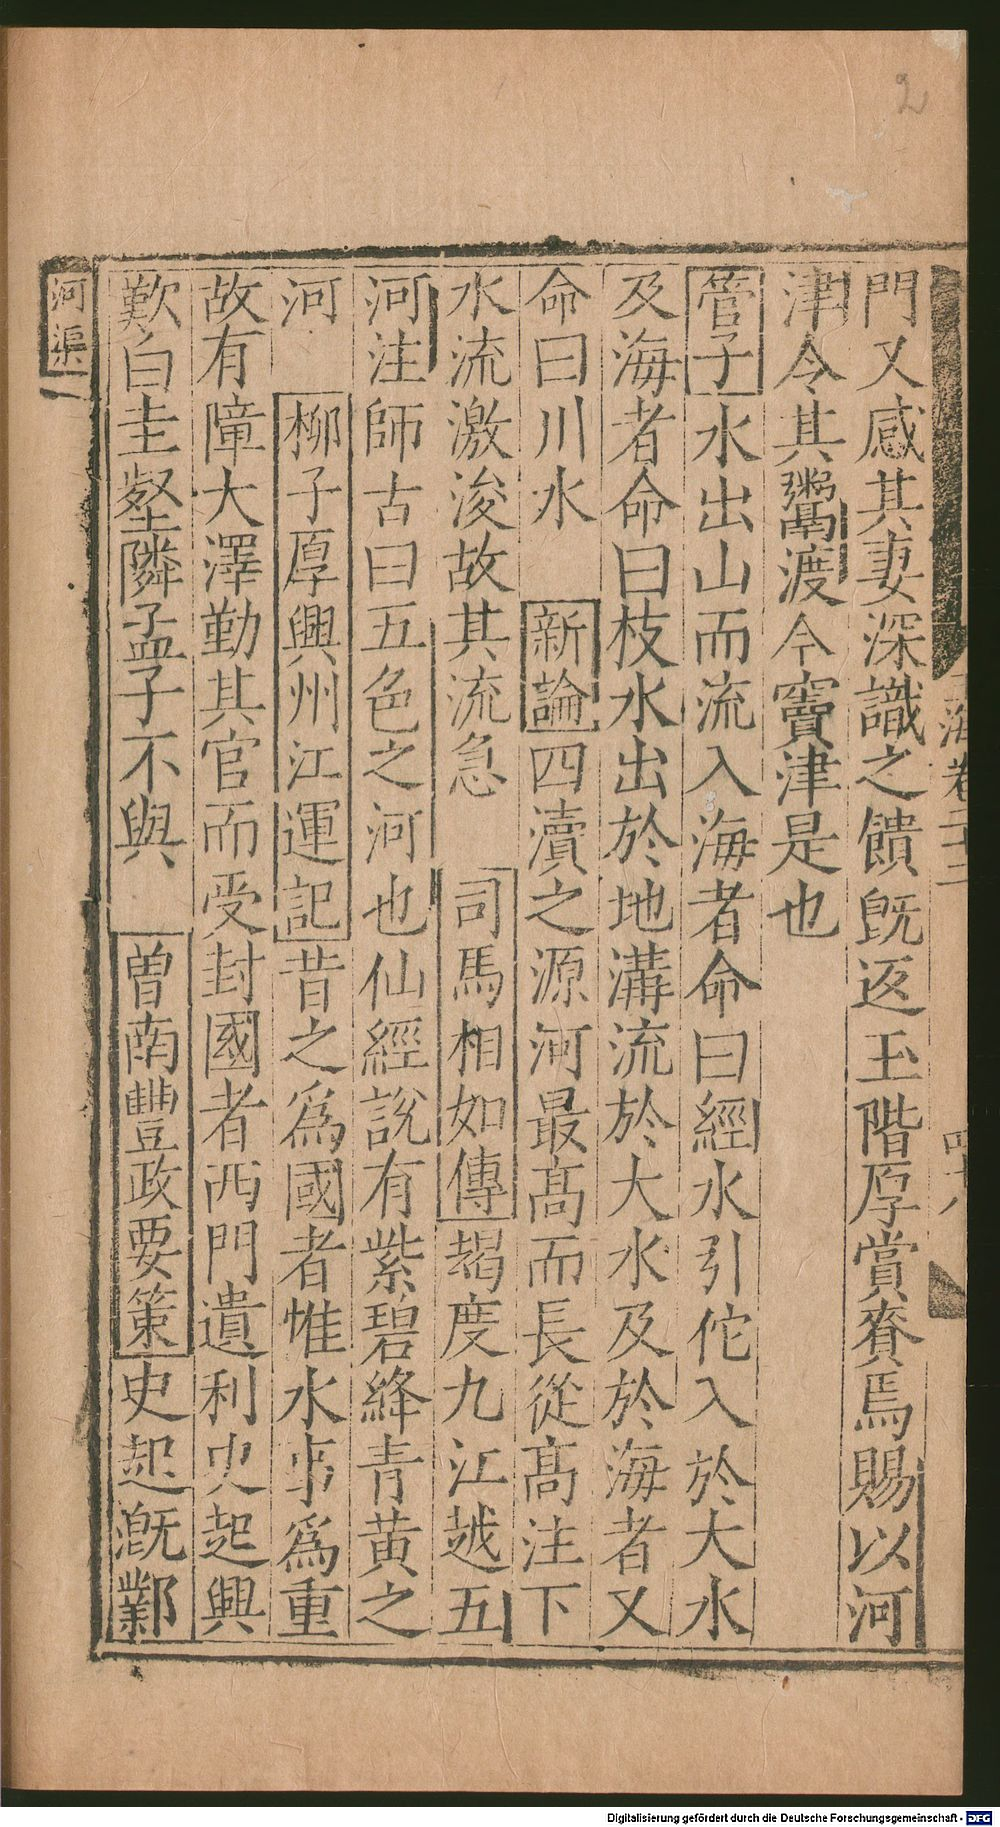 門又感其妻深識之饋旣返玉階厚賞賚焉賜以河
津令其鬻渡今竇津是也
管子水出山而流入海者命曰經水引佗入於大水
及海者命曰枝水出於地溝流於大水及於海者又
命曰川水 新論四瀆之源河最髙而長從髙注下
水流激浚故其流急 司馬相如傳朅度九江越五
河注師古曰五色之河也仙經說有紫碧絳青黄之
河 栁子厚興州江運記昔之爲國者惟水事爲重
故有障大澤勤其官而受封國者西門遺利史起興
歎白圭壑隣孟子不與 曽南豐政要策史起漑鄴
河渠
海卷二十二
2
Digitalisierung gefördert durch die Deutsche Forschungsgemeinschaft - DFG